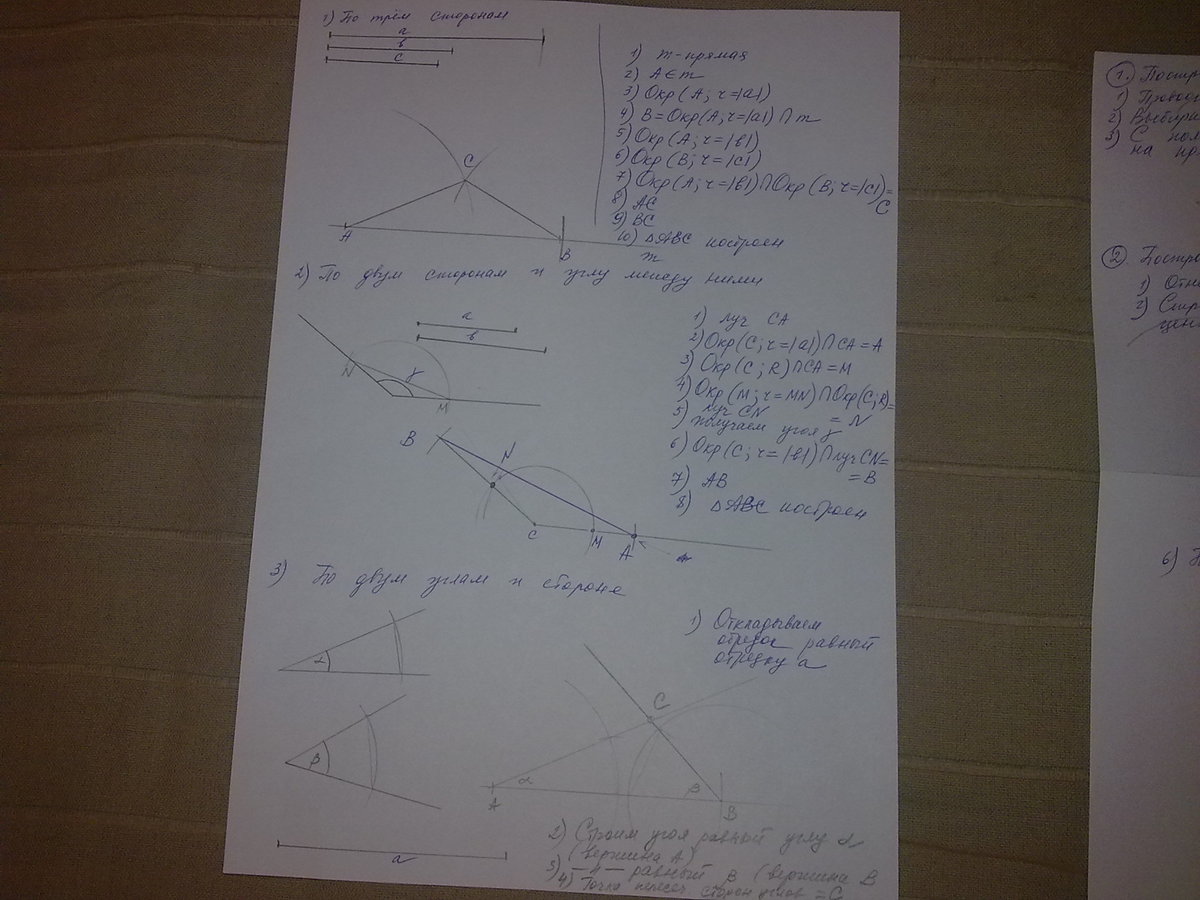 1) По трём сторонам
a
в
c
1) m-прямая
2) A∈m
3) Окр(A; r=|a|)
4) B=Окр(A; r=|a|)∩m
5) Окр(A; r=|в|)
6) Окр(B; r=|c|)
7) Окр(A; r=|в|)∩Окр(B; r=|c|)=
C
8) AC
9) BC
10) △ABC построен
C
A
B
m
2) По двум сторонам и углу между ними
a
в
N
γ
M
1) луч CA
2) Окр(C; r=|a|)∩CA=A
3) Окр(C; R)∩CA=M
4) Окр(M; r=MN)∩Окр(C; R)=
= N
5) луч CN
получаем угол γ
6) Окр(C; r=|в|)∩луч CN=
= B
7) AB
8) △ABC построен
B
N
C
M
A
3) По двум углам и стороне
α
β
a
1) Откладываем
отрезок равный
отрезку a
C
A
α
β
B
2) Строим угол равный углу α
(вершина A)
3) —"— равный β (вершина B
4) Точка пересеч. сторон углов = C
1. Постр
1) Провод
2) Выбира
3) С пол
на пр
2. Постро
1) Отк
2)
цен
6)